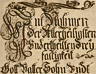 Im Nahmen
der Allerheiligsten
Undzertheilten drey
faltigkeit
Gott Vatter Sohn Undt